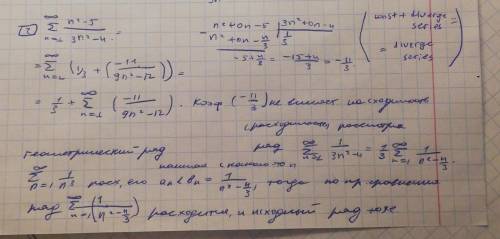 ② ∞∑n=1 n²-5 / 3n²-4 =
- n²+0n-5 | 3n²+0n-4
n²+0n-4/3 | 1/3
-5+4/3 = -15+4 / 3 = -11/3
(const + diverge series = diverge series)
= ∞∑n=1 (1/3 + (-11 / 9n²-12)) =
= 1/3 + ∞∑n=1 (-11 / 9n²-12). Коэф (-11/3) не влияет на сходимость
(расходимость), рассмотрим
ряд ∞∑n=1 1/3n²-4 = 1/3 ∞∑n=1 1/n²-4/3.
геометрический ряд
начиная с какого-то n
∞∑n=1 1/n³ расх, его an < bn = 1/n²-4/3, тогда по пр. сравнения
ряд ∞∑n=1 (1/n²-4/3) расходится, и исходный ряд тоже.